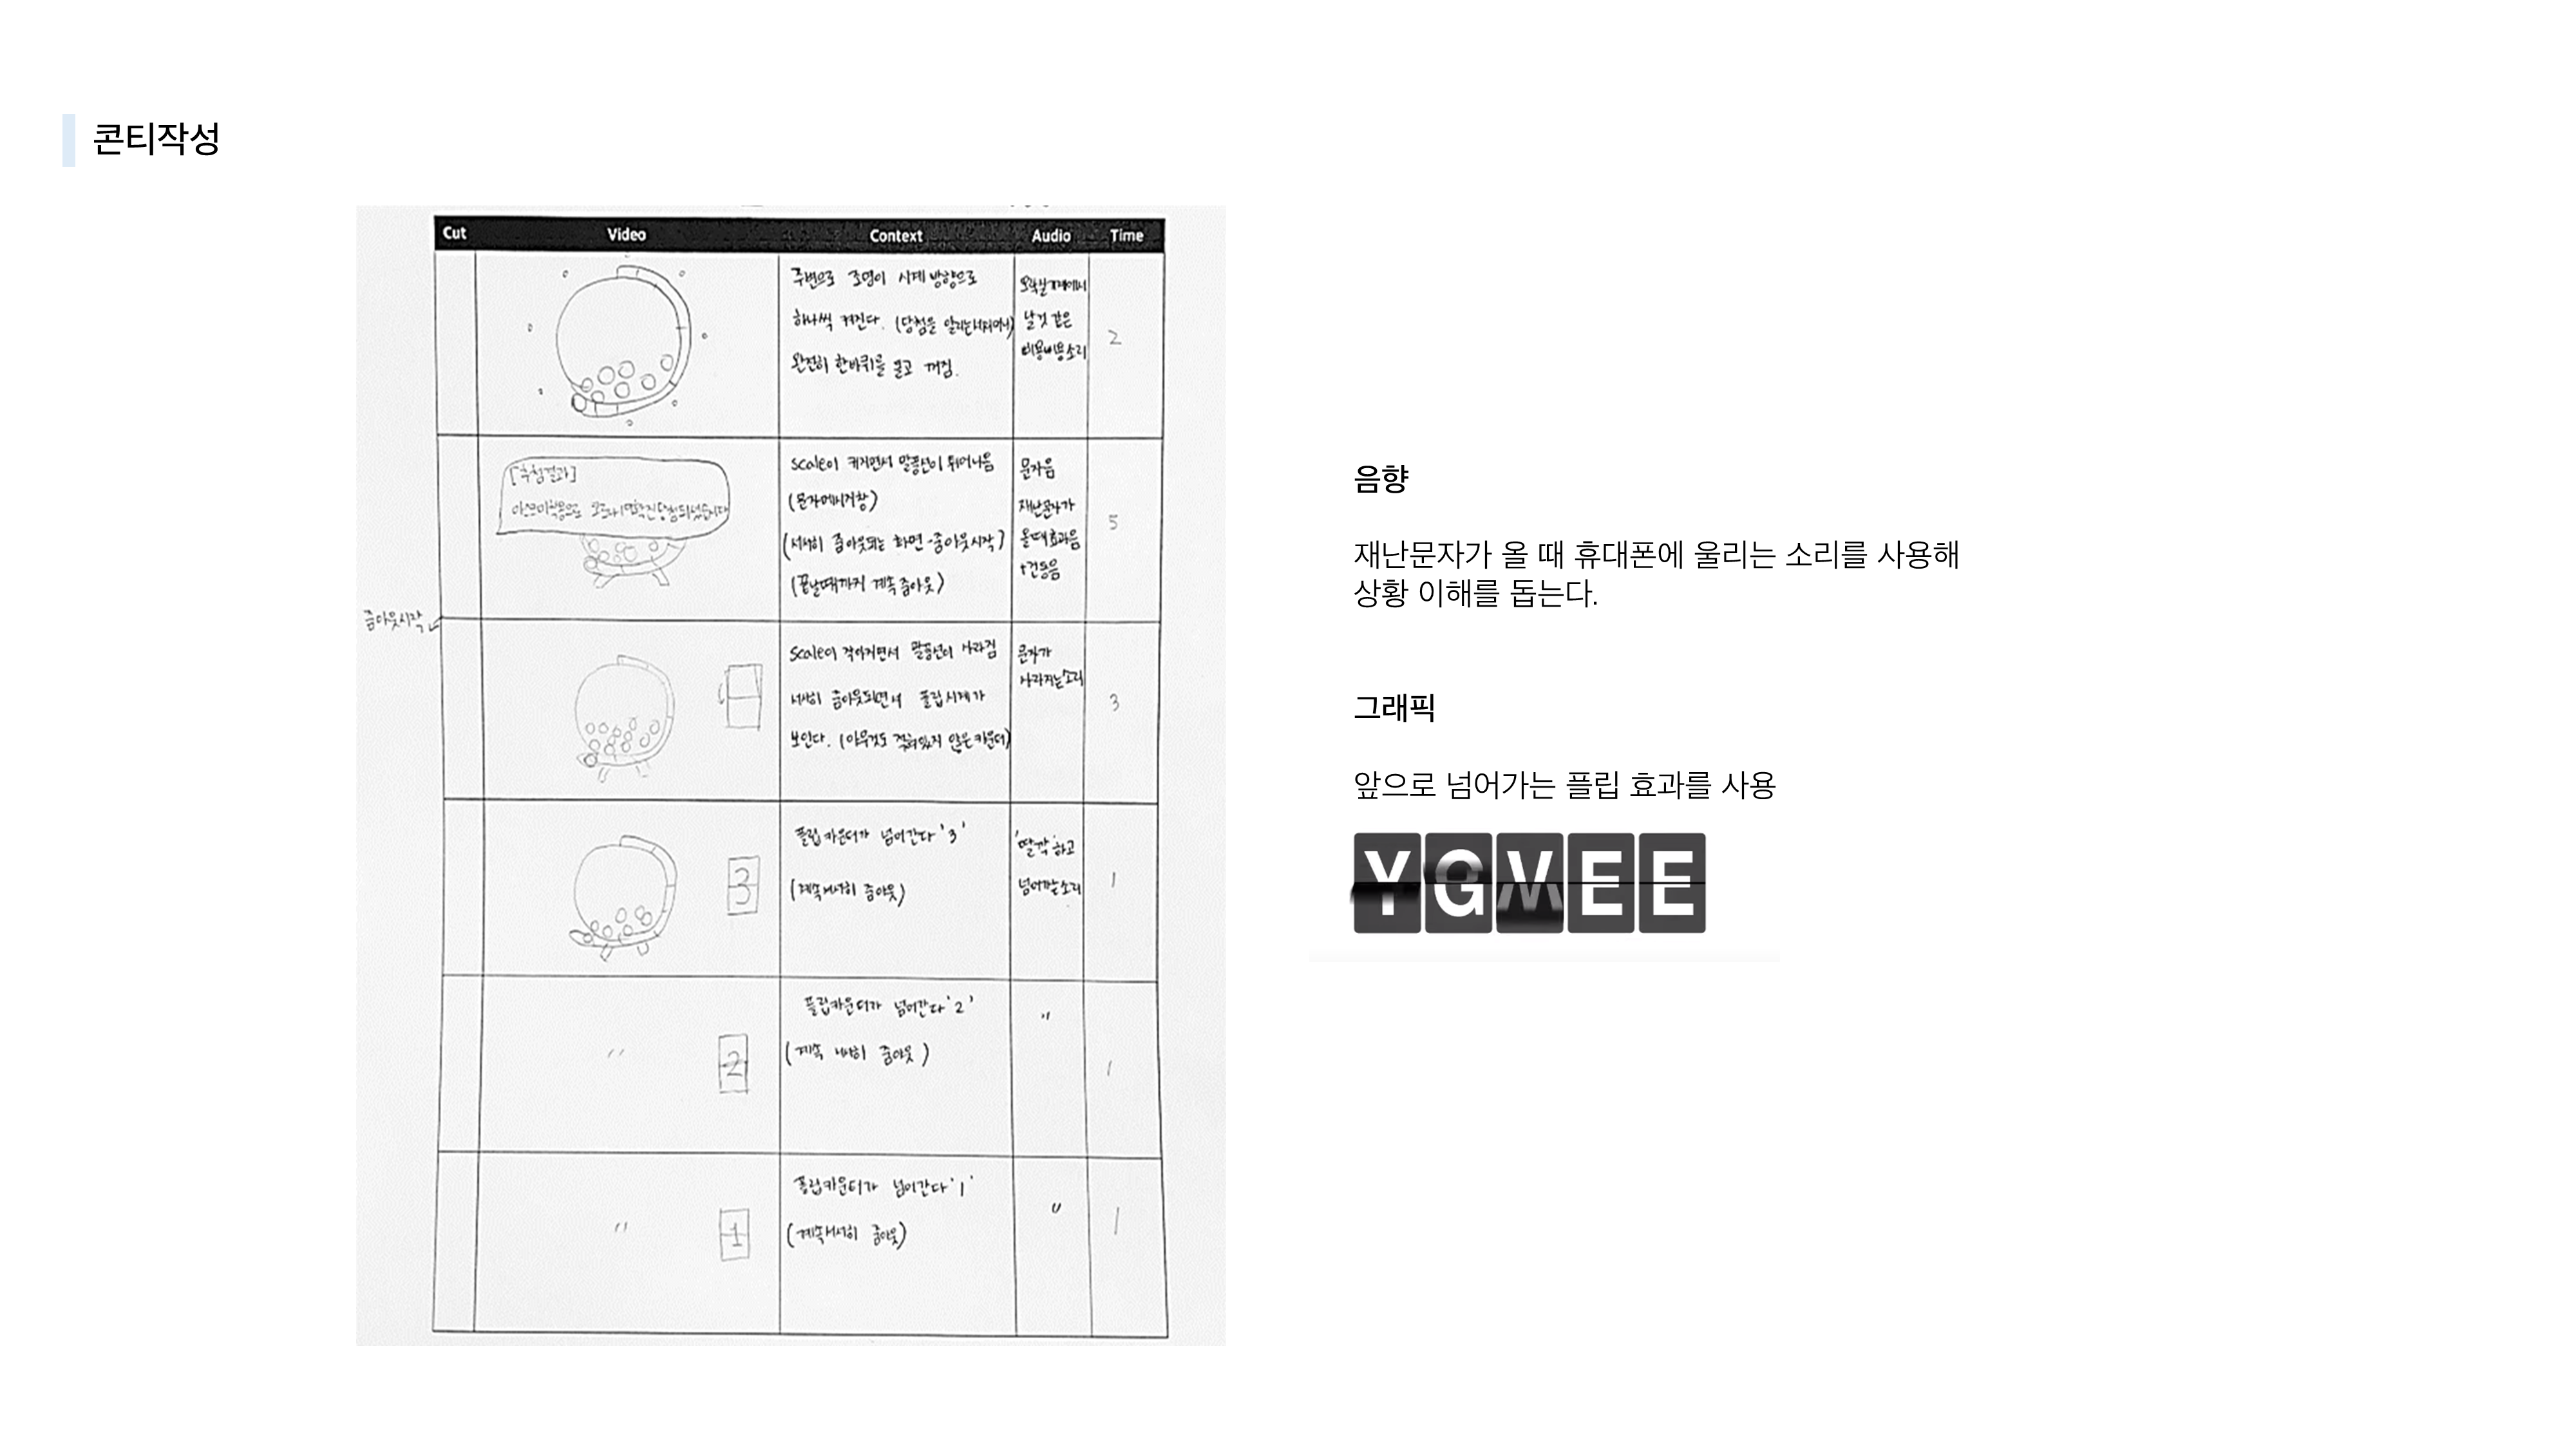 콘티작성
Cut Video Context Audio Time
주변으로 조명이 시계 방향으로
하나씩 켜진다. (당첨을 알리는
완전히 한바퀴를 돌고 꺼짐.
오락실기계에서
날것 같은
삐용삐용소리
2
[추첨결과]
당첨되었습니다
scale이 커지면서 말풍선이 튀어나옴
(문자메시지창)
(서서히 줌아웃되는 화면-줌아웃시작)
(끝날때까지 계속 줌아웃)
문자음
재난문자가
올때 효과음
+진동음
5
줌아웃시작
scale이 작아지면서 말풍선이 사라짐
서서히 줌아웃되면서 플립시계가
보인다. (아무것도 적혀있지 않은 카운터)
문자가
사라지는소리
3
3
플립카운터가 넘어간다 '3'
(계속서서히 줌아웃)
'딸깍'하고
넘어가는소리
1
〃
2
플립카운터가 넘어간다 '2'
(계속 서서히 줌아웃)
〃
1
〃
1
플립카운터가 넘어간다 '1'
(계속서서히 줌아웃)
〃
1
음향
재난문자가 올 때 휴대폰에 울리는 소리를 사용해
상황 이해를 돕는다.
그래픽
앞으로 넘어가는 플립 효과를 사용